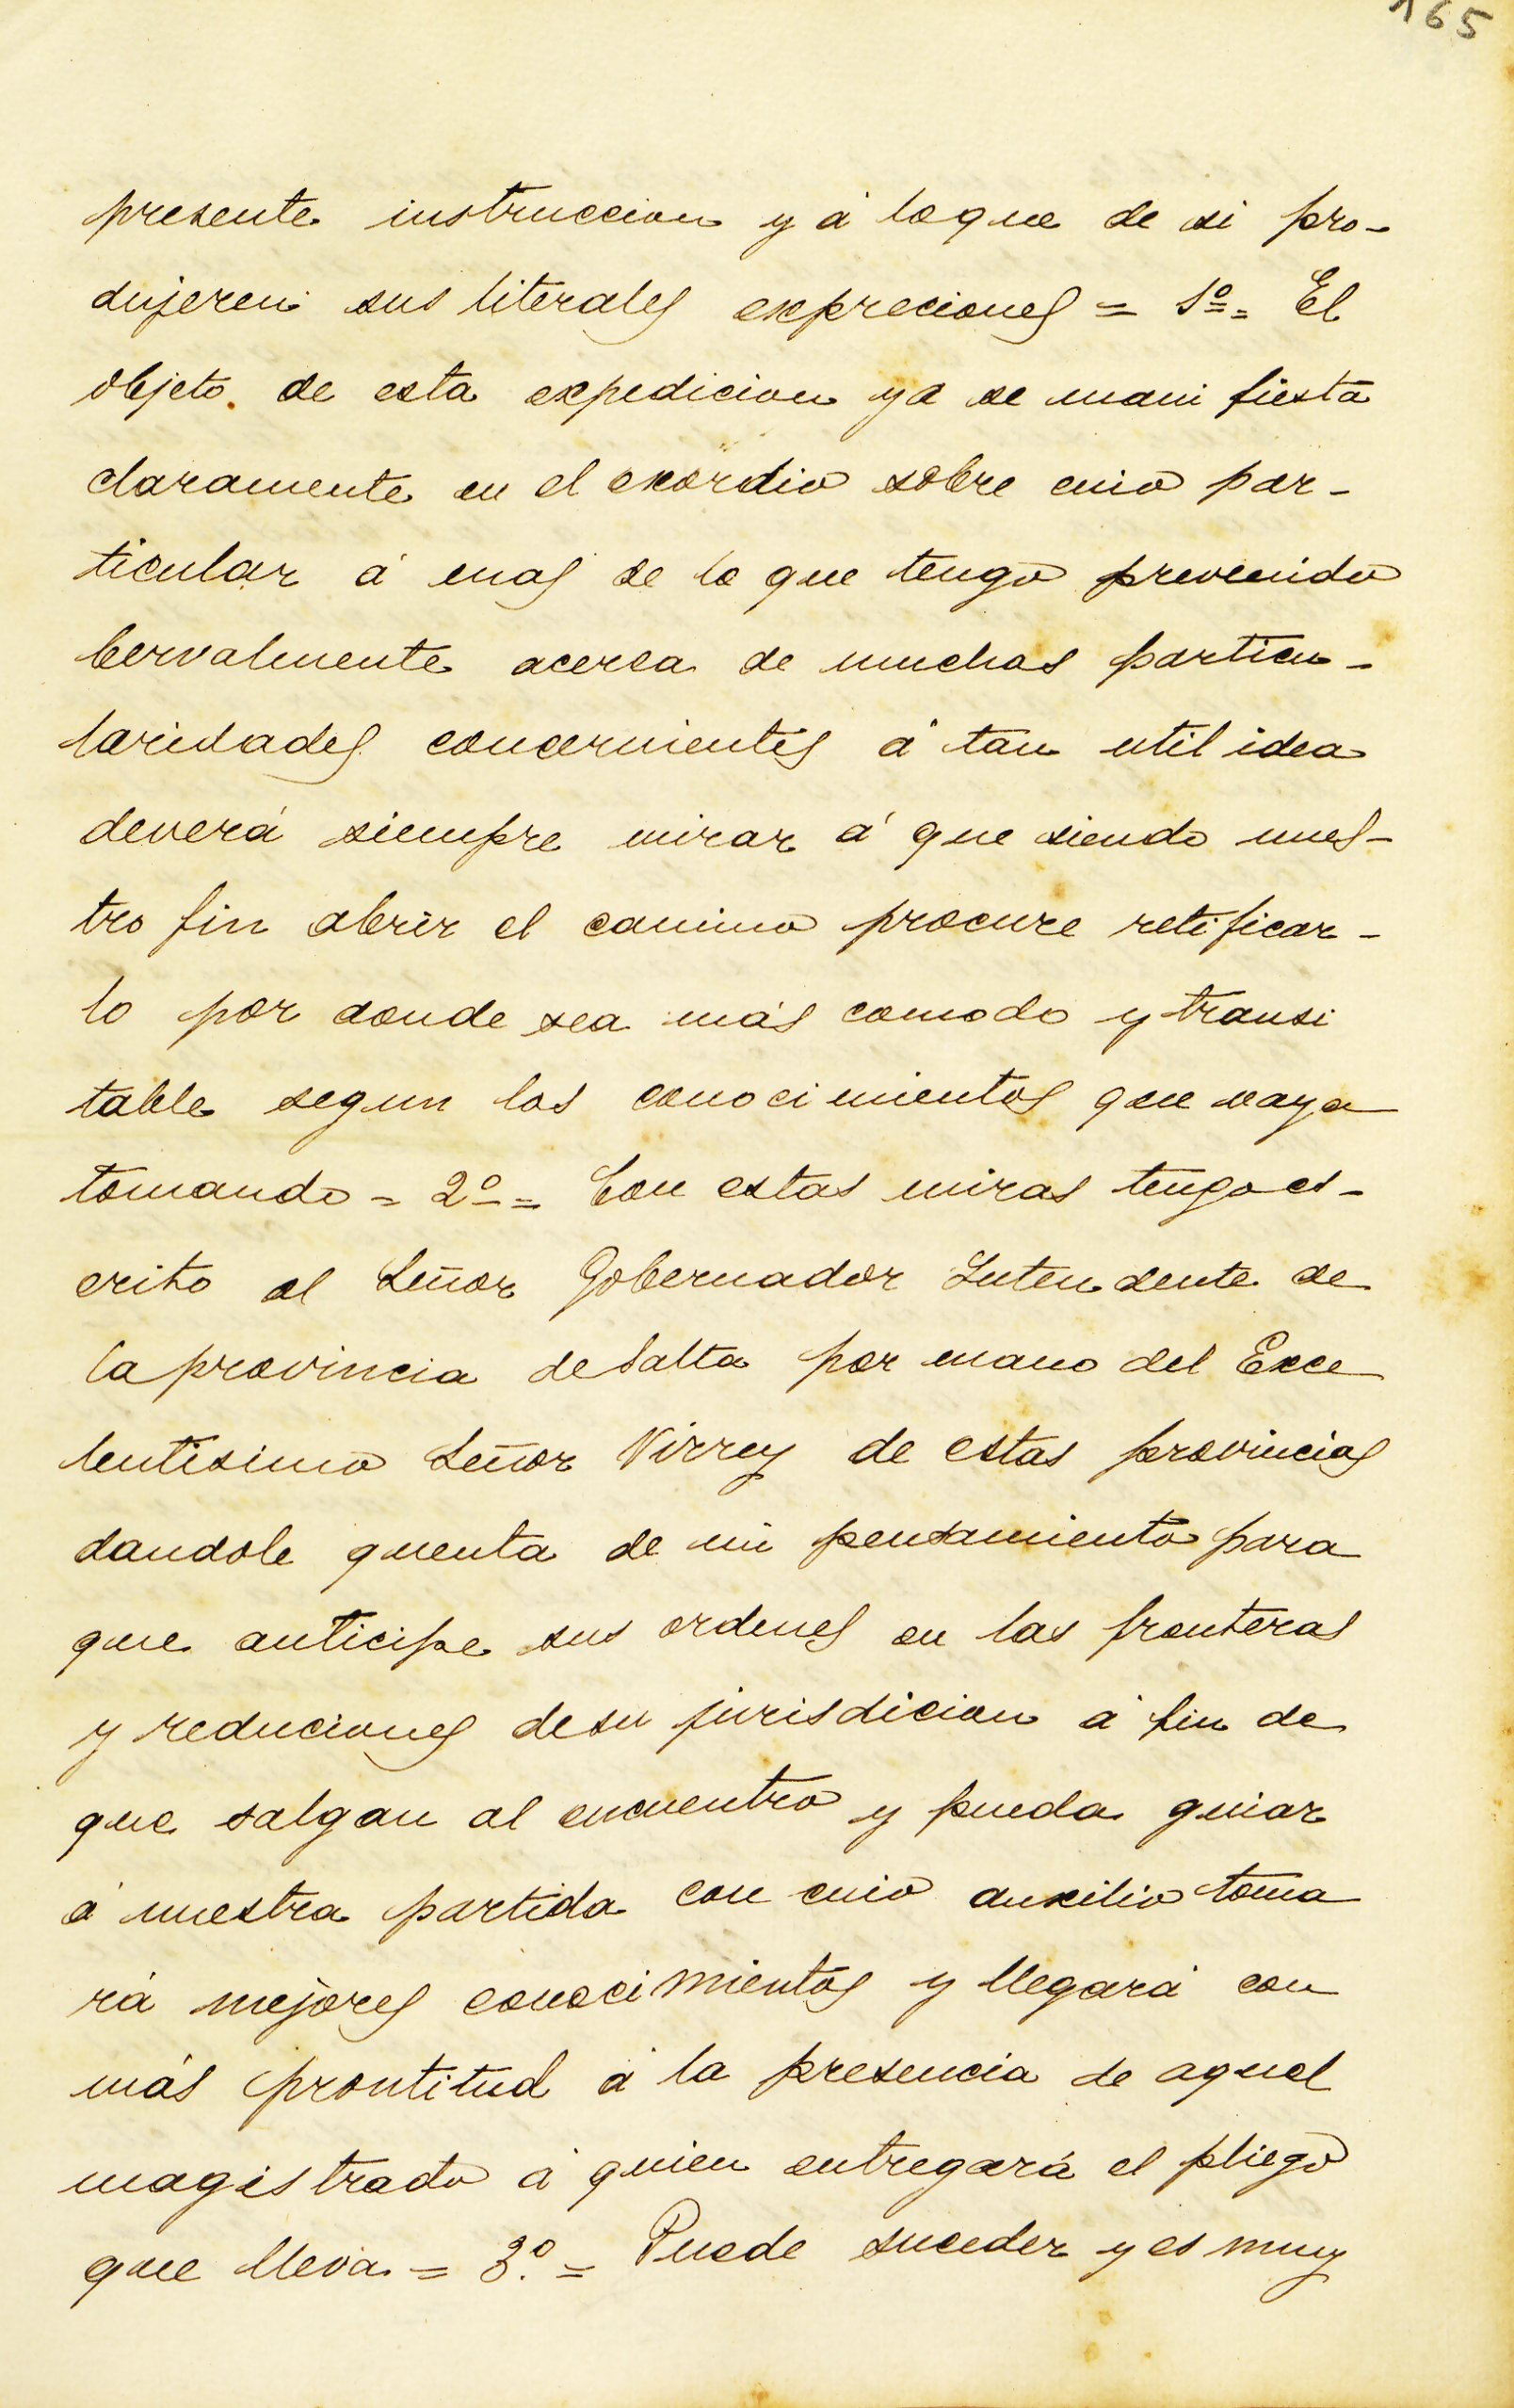 165
presente instruccion y á loque de si pro-
dujeren sus literales expreciones = 1º = El
objeto. de esta expedicion ya se mani fiesta
claramente en el exordio sobre cuio par-
ticular á mas de lo que tengo prevenido
bervalmente acerca de muchas particu-
laridades concernientes á tan util idea
deverá siempre mirar á que siendo nues-
tro fin abrir el camino procure retificar-
lo por donde sea más comodo y transi
table segun los conocimientos que vaya
tomando = 2º = Con estas miras tengo es-
crito al Señor Gobernador Intendente de
la provincia de Salta por mano del Exce
lentisimo Señor Virrey de estas provincias
dandole quenta de mi pensamiento para
que anticipe sus ordenes en las fronteras
y reduciones de su jurisdicion á fin de
que salgan al encuentro y pueda guiar
á nuestra partida con cuio auxilio toma
rá mejores conocimientos y llegará con
más prontitud á la presencia de aquel
magistrado á quien entregará el pliego
que lleva = 3º = Puede suceder y es muy